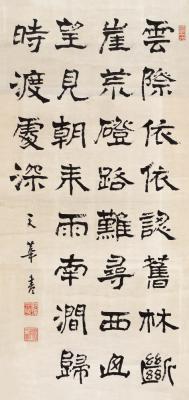 雲際依依認舊林斷
崖荒磴路難尋西山
望見朝来雨南澗歸
時渡處深
天華書